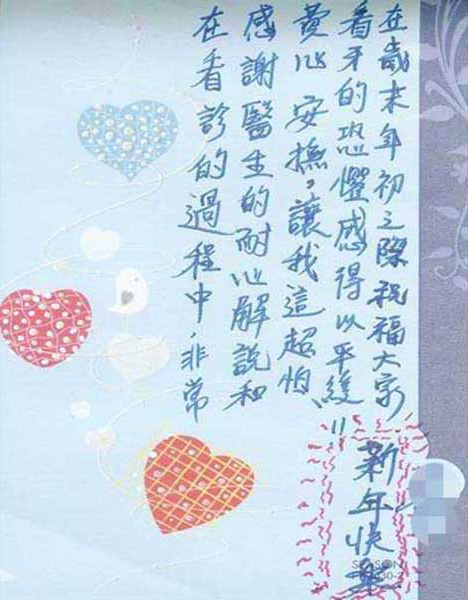 在看診的過程中，非常
感謝醫生的耐心解說和
費心安撫，讓我這超怕、
看牙的恐懼感得以平緩!!
在歲末年初之際祝福大家
新年快樂
SEASON